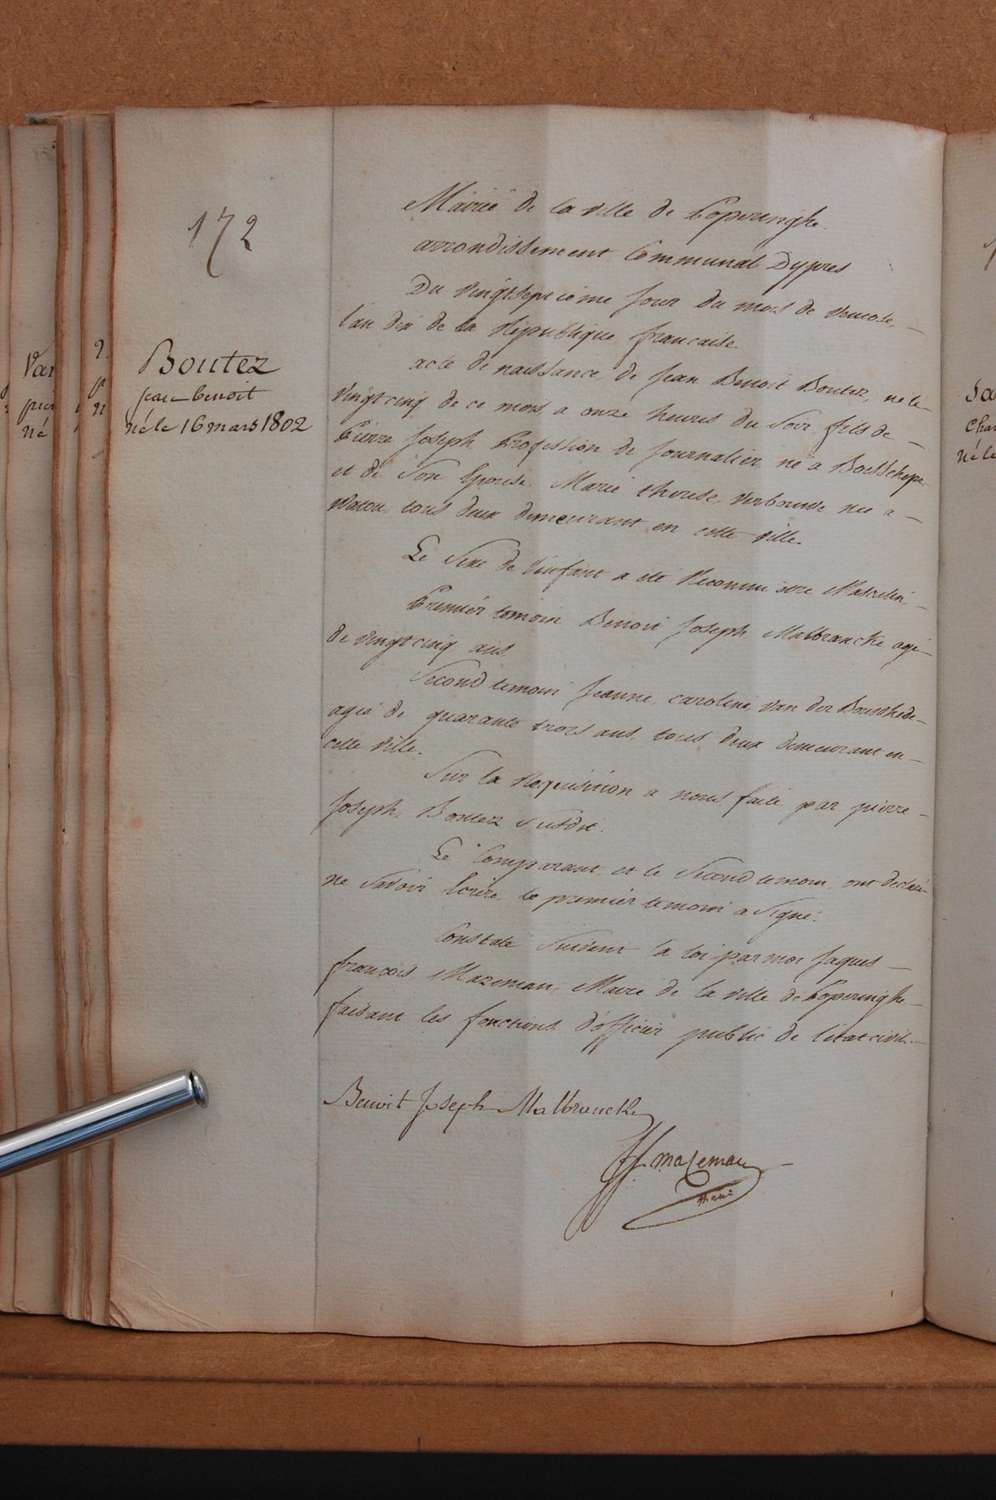 172
Boutez
jean benoit
né le 16 mars 1802
Mairie de la ville de Poperinghe
arrondissement Communal Dypres
Du vingtseptième jour du mois de ventose
l'an dix de la République francaise
acte de naissance de Jean Benoit Boutez, né le
vingtcinq de ce mois a onze heures du soir fils de
Pierre Joseph Profession de Journalier né a Boeschepe
et de son Epouse Marie therese née a
Watou tous deux demeurant en cette ville.
Le Sexe de l'enfant a été Reconnu être Masculin
Premier temoin Benoit Joseph Malbrancke agé
de vingtcinq ans
Second temoin Jeanne caroline van der
agée de quarante trois ans tous deux demeurant en
cette ville.
Sur la Requisition a nous faite par pierre
Joseph Boutez susdit.
Le Comparant et le Second temoin ont declaré
ne Savoir Ecrire le premier temoin a Signé.
Constaté Suivant la loi par moi Jaques
francois Mazeman Maire de la ville de Poperinghe
faisant les fonctions d'officier public de l'état civil
Benoit Joseph Malbrancke
JF Mazeman
Var
né
né le